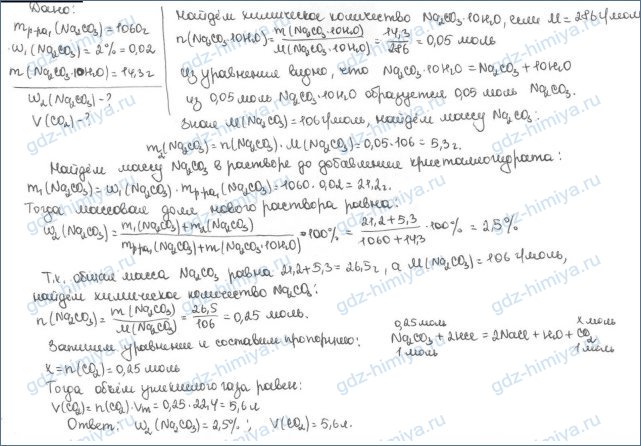 Дано:
m р-ра₁ (Na₂CO₃) = 1060г
w₁ (Na₂CO₃) = 2% = 0,02
m (Na₂CO₃·10H₂O) = 14,3г
w₂ (Na₂CO₃) - ?
V (CO₂) - ?
Найдём химическое количество Na₂CO₃·10H₂O, если M = 286 г/моль
n(Na₂CO₃·10H₂O) = m(Na₂CO₃·10H₂O) / M(Na₂CO₃·10H₂O) = 14,3 / 286 = 0,05 моль
Из уравнения видно, что Na₂CO₃·10H₂O = Na₂CO₃ + 10H₂O
из 0,05 моль Na₂CO₃·10H₂O образуется 0,05 моль Na₂CO₃.
Зная M(Na₂CO₃) = 106 г/моль, найдём массу Na₂CO₃:
m₂(Na₂CO₃) = n(Na₂CO₃)·M(Na₂CO₃) = 0,05·106 = 5,3г.
Найдём массу Na₂CO₃ в растворе до добавления кристаллогидрата:
m₁(Na₂CO₃) = w₁(Na₂CO₃)·m р-ра₁(Na₂CO₃) = 1060·0,02 = 21,2г.
Тогда массовая доля нового раствора равна:
w₂(Na₂CO₃) = m₁(Na₂CO₃) + m₂(Na₂CO₃) / m р-ра₁(Na₂CO₃) + m(Na₂CO₃·10H₂O) · 100% = 21,2 + 5,3 / 1060 + 14,3 · 100% = 2,5%
Т.к. общая масса Na₂CO₃ равна 21,2 + 5,3 = 26,5г, а M(Na₂CO₃) = 106 г/моль,
найдём химическое количество Na₂CO₃:
n(Na₂CO₃) = m(Na₂CO₃) / M(Na₂CO₃) = 26,5 / 106 = 0,25 моль.
Запишем уравнение и составим пропорцию:
0,25 моль x моль
Na₂CO₃ + 2HCl = 2NaCl + H₂O + CO₂
1 моль 1 моль
x = n(CO₂) = 0,25 моль
Тогда объём углекислого газа равен:
V(CO₂) = n(CO₂)·Vm = 0,25·22,4 = 5,6 л
Ответ: w₂(Na₂CO₃) = 2,5%; V(CO₂) = 5,6 л.
gdz-himiya.ru